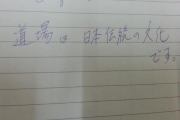 道場は日本伝統の文化
です。